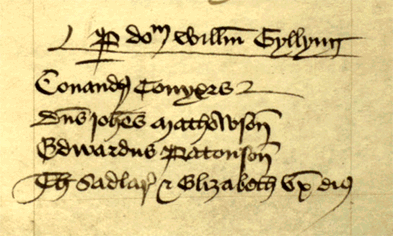 P dom willm Gyllyng
Conandus Conyers
dns Johes Mathewson
Edwardus Patonson
Th Sadlar & Elizabeth Ux eius